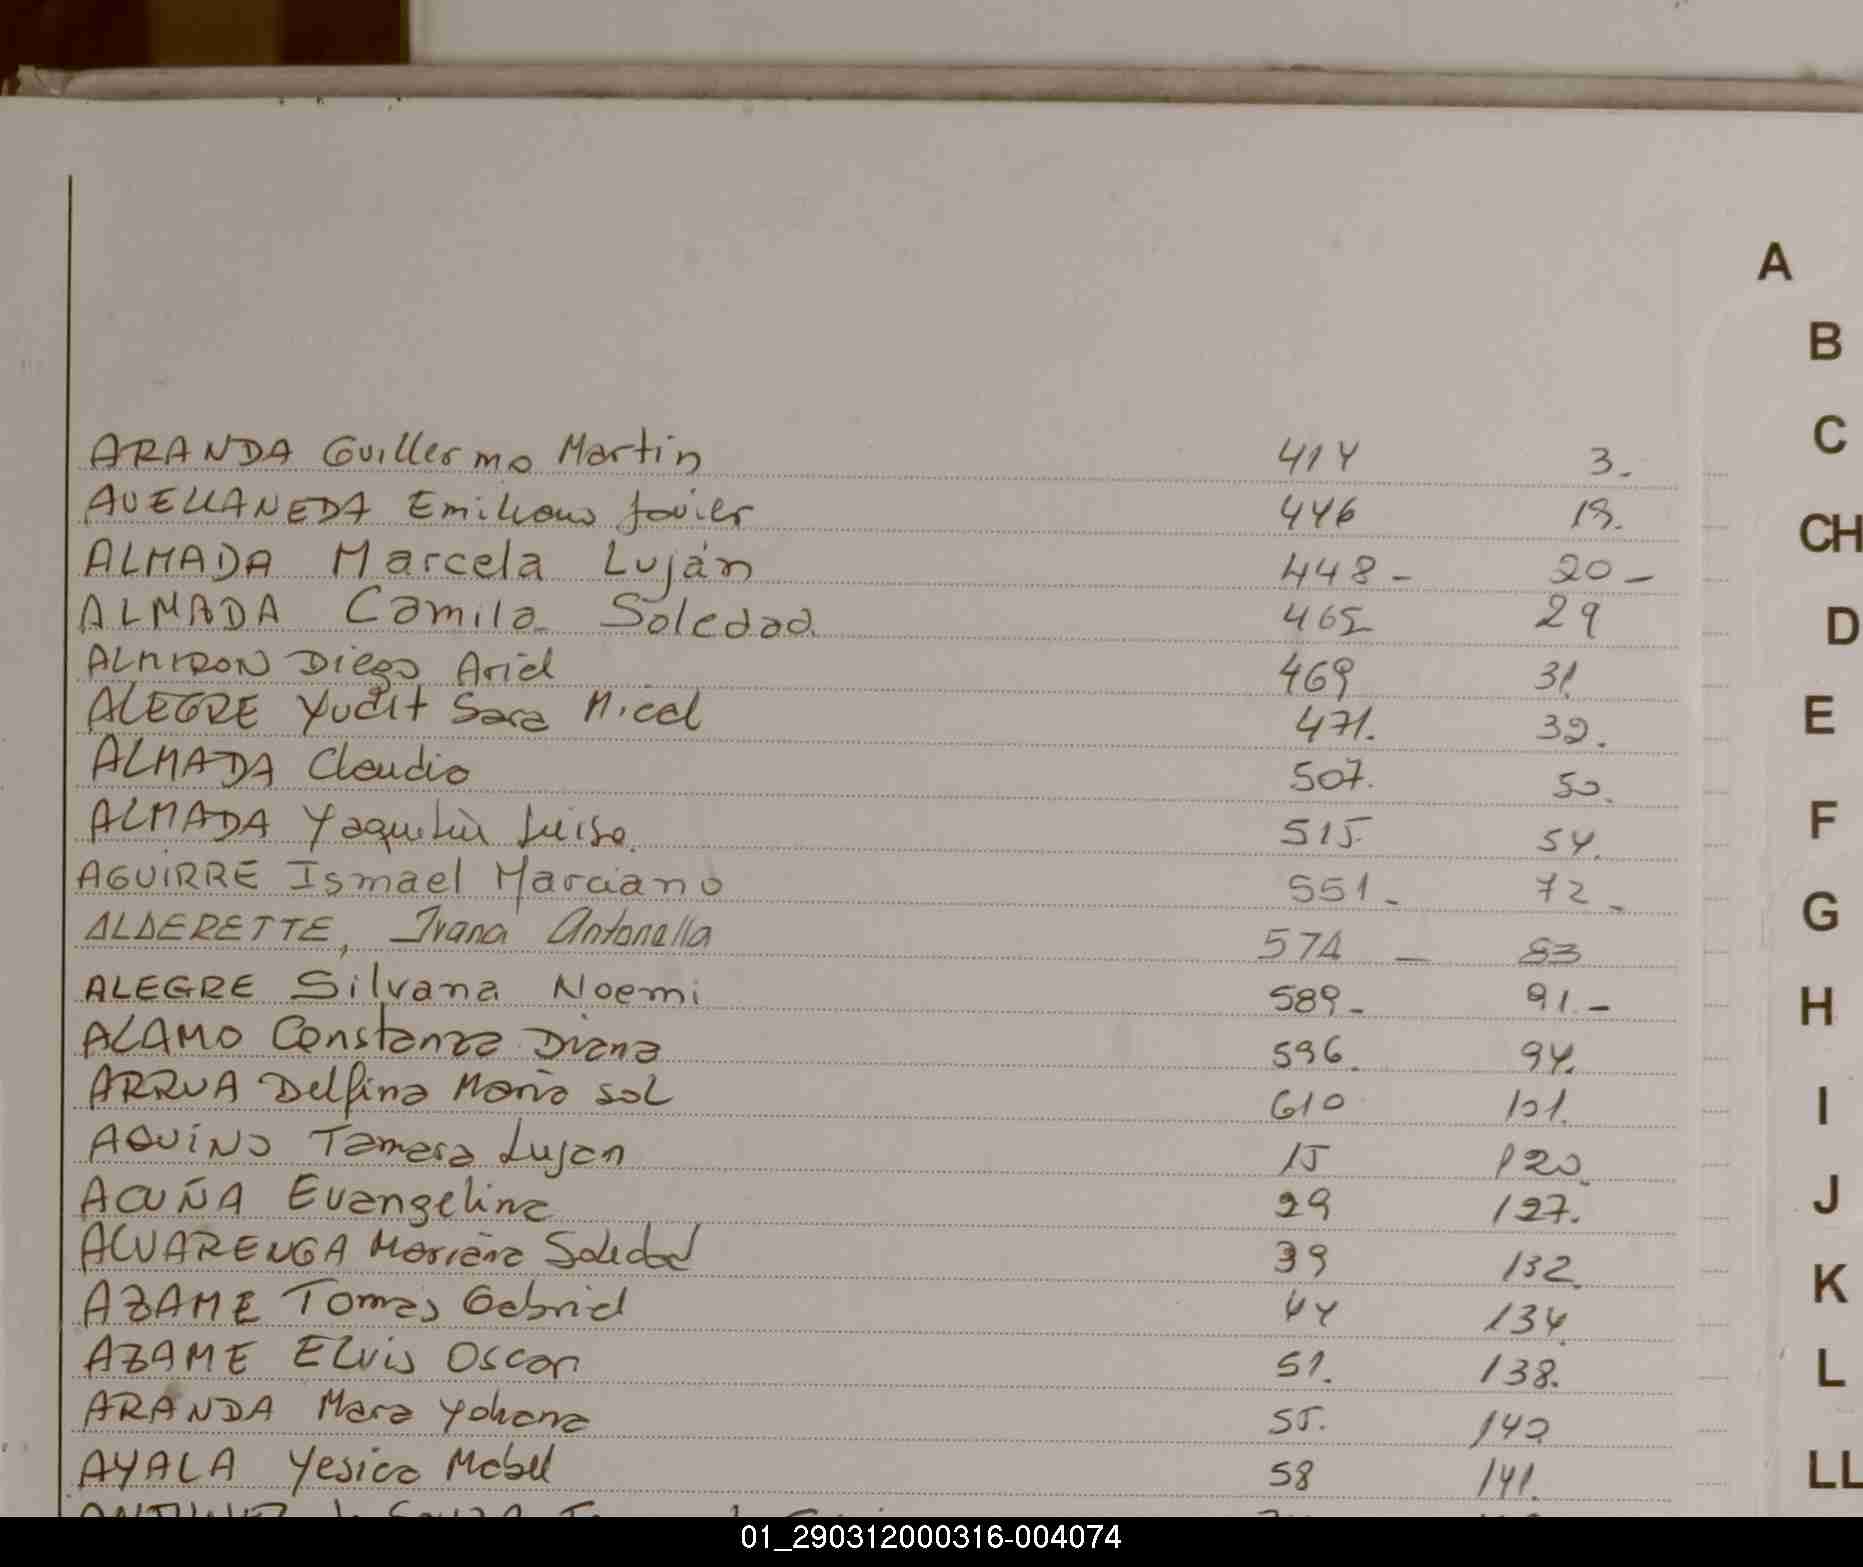 A
B
C
ARANDA Guillermo Martin 414 3.
AVELLANEDA Emiliano Javier 446 19.
CH
ALMADA Marcela Luján 448- 20-
ALMADA Camila Soledad 465 29
D
ALMIRON Diego Ariel 469 31.
ALEGRE Yudit Sara Micol 471. 32.
E
ALMADA Claudio 507. 50.
ALMADA Yaquelin Luisa. 515 54.
F
AGUIRRE Ismael Marciano 551- 72-
G
ALDERETTE, Ivana Antonella 574 - 83
ALEGRE Silvana Noemi 589- 91.-
H
ALAMO Constanza Diana 596. 94.
ARRUA Delfina Maria Sol 610 101.
I
AQUiNO Tamara Lujan 15 120.
ACUÑA Evangelina 29 127.
J
ALVARENGA Mariana Soledad 39 132.
K
AZAME Tomas Gabriel 44 134.
AZAME Elvis Oscar 51. 138.
L
ARANDA Mara Yohana 55. 140
AYALA Yesica Mabel 58 141.
LL
01_290312000316-004074